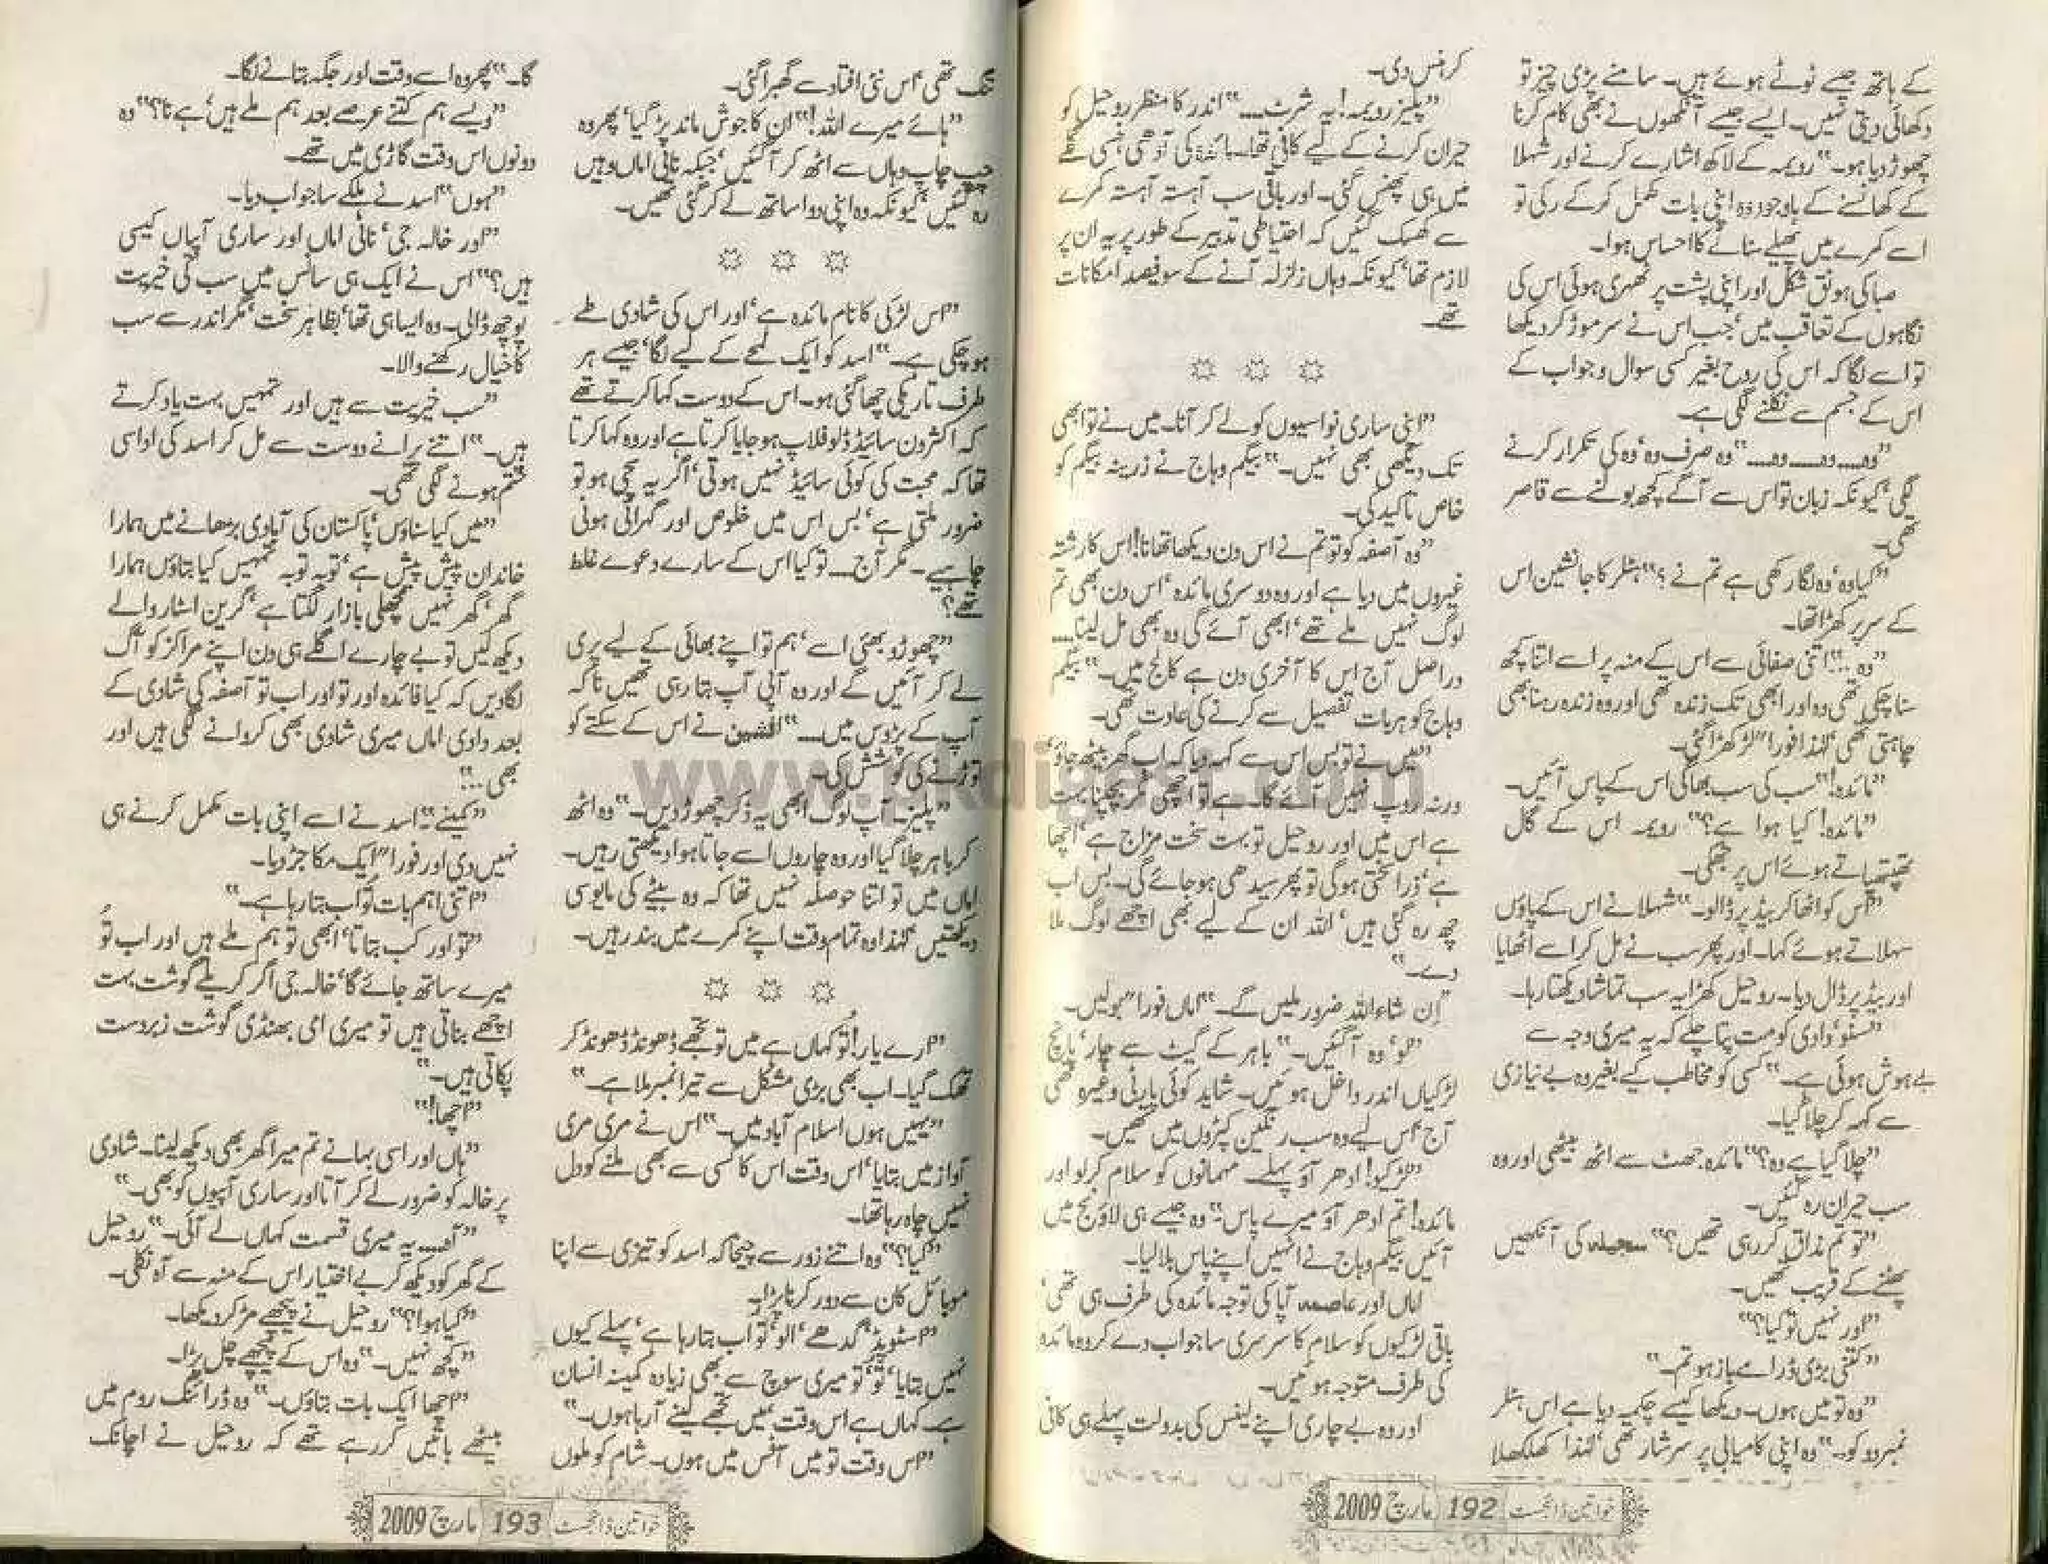 کے ہاتھ جیسے ٹوٹے ہوئے ہیں۔ سامنے پڑی چیز تو
دکھائی دیتی نہیں۔ ایسے جیسے آنکھوں نے بھی کام کرنا
چھوڑ دیا ہو۔“ رویمہ کے لاکھ اشارے کرنے اور شہلا
کے کھانسنے کے باوجود وہ اپنی بات مکمل کرکے رکی تو
اسے کمرے میں پھیلے سناٹے کا احساس ہوا۔
صبا کی ہونق شکل اور اپنی پشت پر ٹھہری ہوئی اس کی
نگاہوں کے تعاقب میں‘ جب اس نے سر موڑ کر دیکھا
تو اسے لگا کہ اس کی روح بغیر کسی سوال و جواب کے
اس کے جسم سے نکلنے لگی ہے۔
”وہ.... وہ.... وہ....“ وہ صرف وہ‘ وہ کی تکرار کرنے
لگی‘ کیونکہ زبان تو اس سے آگے کچھ بولنے سے قاصر
تھی۔
”کیا وہ‘ وہ لگا رکھی ہے تم نے؟“ ہٹلر کا جانشین اس
کے سر پر کھڑا تھا۔
”وہ...“ اتنی صفائی سے اس کے منہ پر اسے اتنا کچھ
سنا چکی تھی وہ اور ابھی تک زندہ تھی اور وہ زندہ رہنا بھی
چاہتی تھی‘ لہٰذا فورا“ لڑکھڑا گئی۔
”مائدہ!“ سب کی سب بھاگی اس کے پاس آئیں۔
”مائدہ! کیا ہوا ہے؟“ رویمہ اس کے گال
تھپتھپاتے ہوئے اس پر جھکی۔
”اس کو اٹھا کر بیڈ پر ڈالو۔“ شہلا نے اس کے پاؤں
سہلاتے ہوئے کہا۔ اور پھر سب نے مل کر اسے اٹھایا
اور بیڈ پر ڈال دیا۔ روحیل کھڑا یہ سب تماشا دیکھتا رہا۔
”سنو‘ دادی کو مت پتا چلے کہ یہ میری وجہ سے
بے ہوش ہوئی ہے۔“ کسی کو مخاطب کیے بغیر وہ بے نیازی
سے کہہ کر چلا گیا۔
”چلا گیا ہے وہ؟“ مائدہ جھٹ سے اٹھ بیٹھی اور وہ
سب حیران رہ گئیں۔
”تو تم مذاق کر رہی تھیں؟“ کی آنکھیں
پھٹنے کے قریب تھیں۔
”اور نہیں تو کیا؟“
”کتنی بڑی ڈرامے باز ہو تم۔“
”وہ تو میں ہوں۔ دیکھا کیسے چکمہ دیا ہے اس ہٹلر
نمبر دو کو۔“ وہ اپنی کامیابی پر سرشار تھی‘ لہٰذا کھلکھلا
کر ہنس دی۔
”پلیز رویمہ! یہ شرٹ....“ اندر کا منظر روحیل کو
حیران کرنے کے لیے کافی تھا۔ مائدہ کی آدھی ہنسی گلے
میں ہی پھنس گئی۔ اور باقی سب آہستہ آہستہ کمرے
سے کھسک گئیں کہ احتیاطی تدبیر کے طور پر یہ ان پر
لازم تھا‘ کیونکہ وہاں زلزلہ آنے کے سو فیصد امکانات
تھے۔
”اپنی ساری نواسیوں کو لے کر آنا۔ میں نے تو ابھی
تک دیکھی بھی نہیں۔“ بیگم وہاج نے زرینہ بیگم کو
خاص تاکید کی۔
”وہ آصفہ کو تو تم نے اس دن دیکھا تھا نا! اس کا رشتہ
غیروں میں دیا ہے اور وہ دوسری مائدہ‘ اس دن بھی تم
لوگ نہیں ملے تھے‘ ابھی آئے گی وہ بھی مل لینا....
دراصل آج اس کا آخری دن ہے کالج میں۔“ بیگم
وہاج کو ہر بات تفصیل سے کرنے کی عادت تھی۔
”میں نے تو بس اس سے کہہ دیا کہ اب گھر بیٹھ جاؤ‘
ورنہ روپ نہیں آئے گا۔ ہے تو اچھی مگر بچپنا بہت
ہے اس میں اور روحیل تو بہت سخت مزاج ہے‘ اچھا
ہے‘ ذرا سختی ہوگی تو پھر سیدھی ہو جائے گی۔ بس اب
چھ رہ گئی ہیں‘ اللہ ان کے لیے بھی اچھے لوگ ملا
دے۔“
”ان شاء اللہ ضرور ملیں گے۔“ اماں فورا“ بولیں۔
”لو‘ وہ آگئیں۔“ باہر کے گیٹ سے چار‘ پانچ
لڑکیاں اندر داخل ہوئیں۔ شاید کوئی پارٹی وغیرہ تھی
آج‘ اس لیے وہ سب رنگین کپڑوں میں تھیں۔
”لڑکیو! ادھر آؤ پہلے۔ مہمانوں کو سلام کر لو اور
مائدہ! تم ادھر آؤ میرے پاس۔“ وہ جیسے ہی لاؤنج میں
آئیں بیگم وہاج نے انہیں اپنے پاس بلا لیا۔
اماں اور عاصمہ آپا کی توجہ مائدہ کی طرف ہی تھی‘
باقی لڑکیوں کو سلام کا سرسری سا جواب دے کر وہ مائدہ
کی طرف متوجہ ہوئیں۔
اور وہ بے چاری اپنے لینس کی بدولت پہلے ہی کافی
خواتین ڈائجسٹ 192 مارچ 2009
تنگ تھی‘ اس نئی افتاد سے گھبرا گئی۔
”ہائے میرے اللہ!“ ان کا جوش ماند پڑ گیا‘ پھر وہ
چپ چاپ وہاں سے اٹھ کر آگئیں‘ جبکہ نانی اماں وہیں
رہ گئیں‘ کیونکہ وہ اپنی دوا ساتھ لے کر گئی تھیں۔
”اس لڑکی کا نام مائدہ ہے‘ اور اس کی شادی طے
ہو چکی ہے۔“ اسد کو ایک لمحے کے لیے لگا‘ جیسے ہر
طرف تاریکی چھا گئی ہو۔ اس کے دوست کہا کرتے تھے
کہ اکثر ون سائیڈڈ لو فلاپ ہو جایا کرتا ہے اور وہ کہا کرتا
تھا کہ محبت کی کوئی سائیڈ نہیں ہوتی‘ اگر یہ سچی ہو تو
ضرور ملتی ہے‘ بس اس میں خلوص اور گہرائی ہونی
چاہیے۔ مگر آج.... تو کیا اس کے سارے دعوے غلط
تھے؟
”چھوڑو بھئی اسے‘ ہم تو اپنے بھائی کے لیے پری
لے کر آئیں گے اور وہ آپی آپ بتا رہی تھیں نا کہ
آپ کے پڑوس میں....“ افشین نے اس کے سکتے کو
توڑنے کی کوشش کی۔
www.pkdigest.com
”پلیز۔ آپ لوگ ابھی یہ ذکر چھوڑ دیں۔“ وہ اٹھ
کر باہر چلا گیا اور وہ چاروں اسے جاتا ہوا دیکھتی رہیں۔
اماں میں تو اتنا حوصلہ نہیں تھا کہ وہ بیٹے کی مایوسی
دیکھتیں‘ لہٰذا وہ تمام وقت اپنے کمرے میں بند رہیں۔
”ارے یار! تُو کہاں ہے میں تو تجھے ڈھونڈ ڈھونڈ کر
تھک گیا۔ اب بھی بڑی مشکل سے تیرا نمبر ملا ہے۔“
”یہیں ہوں اسلام آباد میں۔“ اس نے مری مری
آواز میں بتایا‘ اس وقت اس کا کسی سے بھی ملنے کو دل
نہیں چاہ رہا تھا۔
”کیا؟“ وہ اتنے زور سے چیخا کہ اسد کو تیزی سے اپنا
موبائل کان سے دور کرنا پڑا۔
”اسٹوپڈ‘ گدھے‘ الو‘ تُو اب بتا رہا ہے‘ پہلے کیوں
نہیں بتایا‘ تُو‘ تُو میری سوچ سے بھی زیادہ کمینہ انسان
ہے۔ کہاں ہے اس وقت‘ میں تجھے لینے آرہا ہوں۔“
”اس وقت تو میں آفس میں ہوں۔ شام کو ملوں
گا۔“ پھر وہ اسے وقت اور جگہ بتانے لگا۔
”ویسے ہم کتنے عرصے بعد ہم ملے ہیں‘ ہے نا؟“ وہ
دونوں اس وقت گاڑی میں تھے۔
”ہوں“ اسد نے ہلکے سا جواب دیا۔
”اور خالہ جی‘ نانی اماں اور ساری آپیاں کیسی
ہیں؟“ اس نے ایک ہی سانس میں سب کی خیریت
پوچھ ڈالی۔ وہ ایسا ہی تھا‘ بظاہر سخت‘ مگر اندر سے سب
کا خیال رکھنے والا۔
”سب خیریت سے ہیں اور تمہیں بہت یاد کرتے
ہیں۔“ اتنے پرانے دوست سے مل کر اسد کی اداسی
ختم ہونے لگی تھی۔
”میں کیا سناؤں‘ پاکستان کی آبادی بڑھانے میں ہمارا
خاندان پیش پیش ہے‘ توبہ توبہ تمہیں کیا بتاؤں ہمارا
گھر‘ گھر نہیں مچھلی بازار لگتا ہے‘ گرین اسٹار والے
دیکھ لیں تو بے چارے اگلے ہی دن اپنے مراکز کو آگ
لگا دیں کہ کیا فائدہ اور تو اور اب تو آصفہ کی شادی کے
بعد دادی اماں میری شادی بھی کروانے لگی ہیں اور
بھی...“
”کمینے۔“ اسد نے اسے اپنی بات مکمل کرنے ہی
نہیں دی اور فورا“ ایک مکا جڑ دیا۔
”اتنی اہم بات تُو اب بتا رہا ہے۔“
”تو اور کب بتاتا‘ ابھی تو ہم ملے ہیں اور اب تُو
میرے ساتھ جائے گا‘ خالہ جی اگر کریلے گوشت بہت
اچھے بناتی ہیں تو میری امی بھنڈی گوشت زبردست
پکاتی ہیں۔“
”اچھا!“
”ہاں اور اسی بہانے تم میرا گھر بھی دیکھ لینا۔ شادی
پر خالہ کو ضرور لے کر آنا اور ساری آپیوں کو بھی۔“
”آہ.... یہ میری قسمت کہاں لے آئی۔“ روحیل
کے گھر کو دیکھ کر بے اختیار اس کے منہ سے آہ نکلی۔
”کیا ہوا؟“ روحیل نے پیچھے مڑ کر دیکھا۔
”کچھ نہیں۔“ وہ اس کے پیچھے چل پڑا۔
”اچھا ایک بات بتاؤں۔“ وہ ڈرائنگ روم میں
بیٹھے باتیں کر رہے تھے کہ روحیل نے اچانک
خواتین ڈائجسٹ 193 مارچ 2009